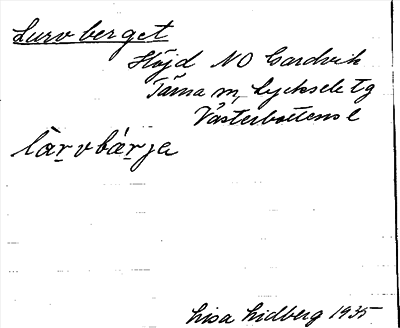 Lurvberget
Höjd NO Gardvik
Tärna sn, Lycksele tg
Västerbottens l
Lisa Lidberg 1935